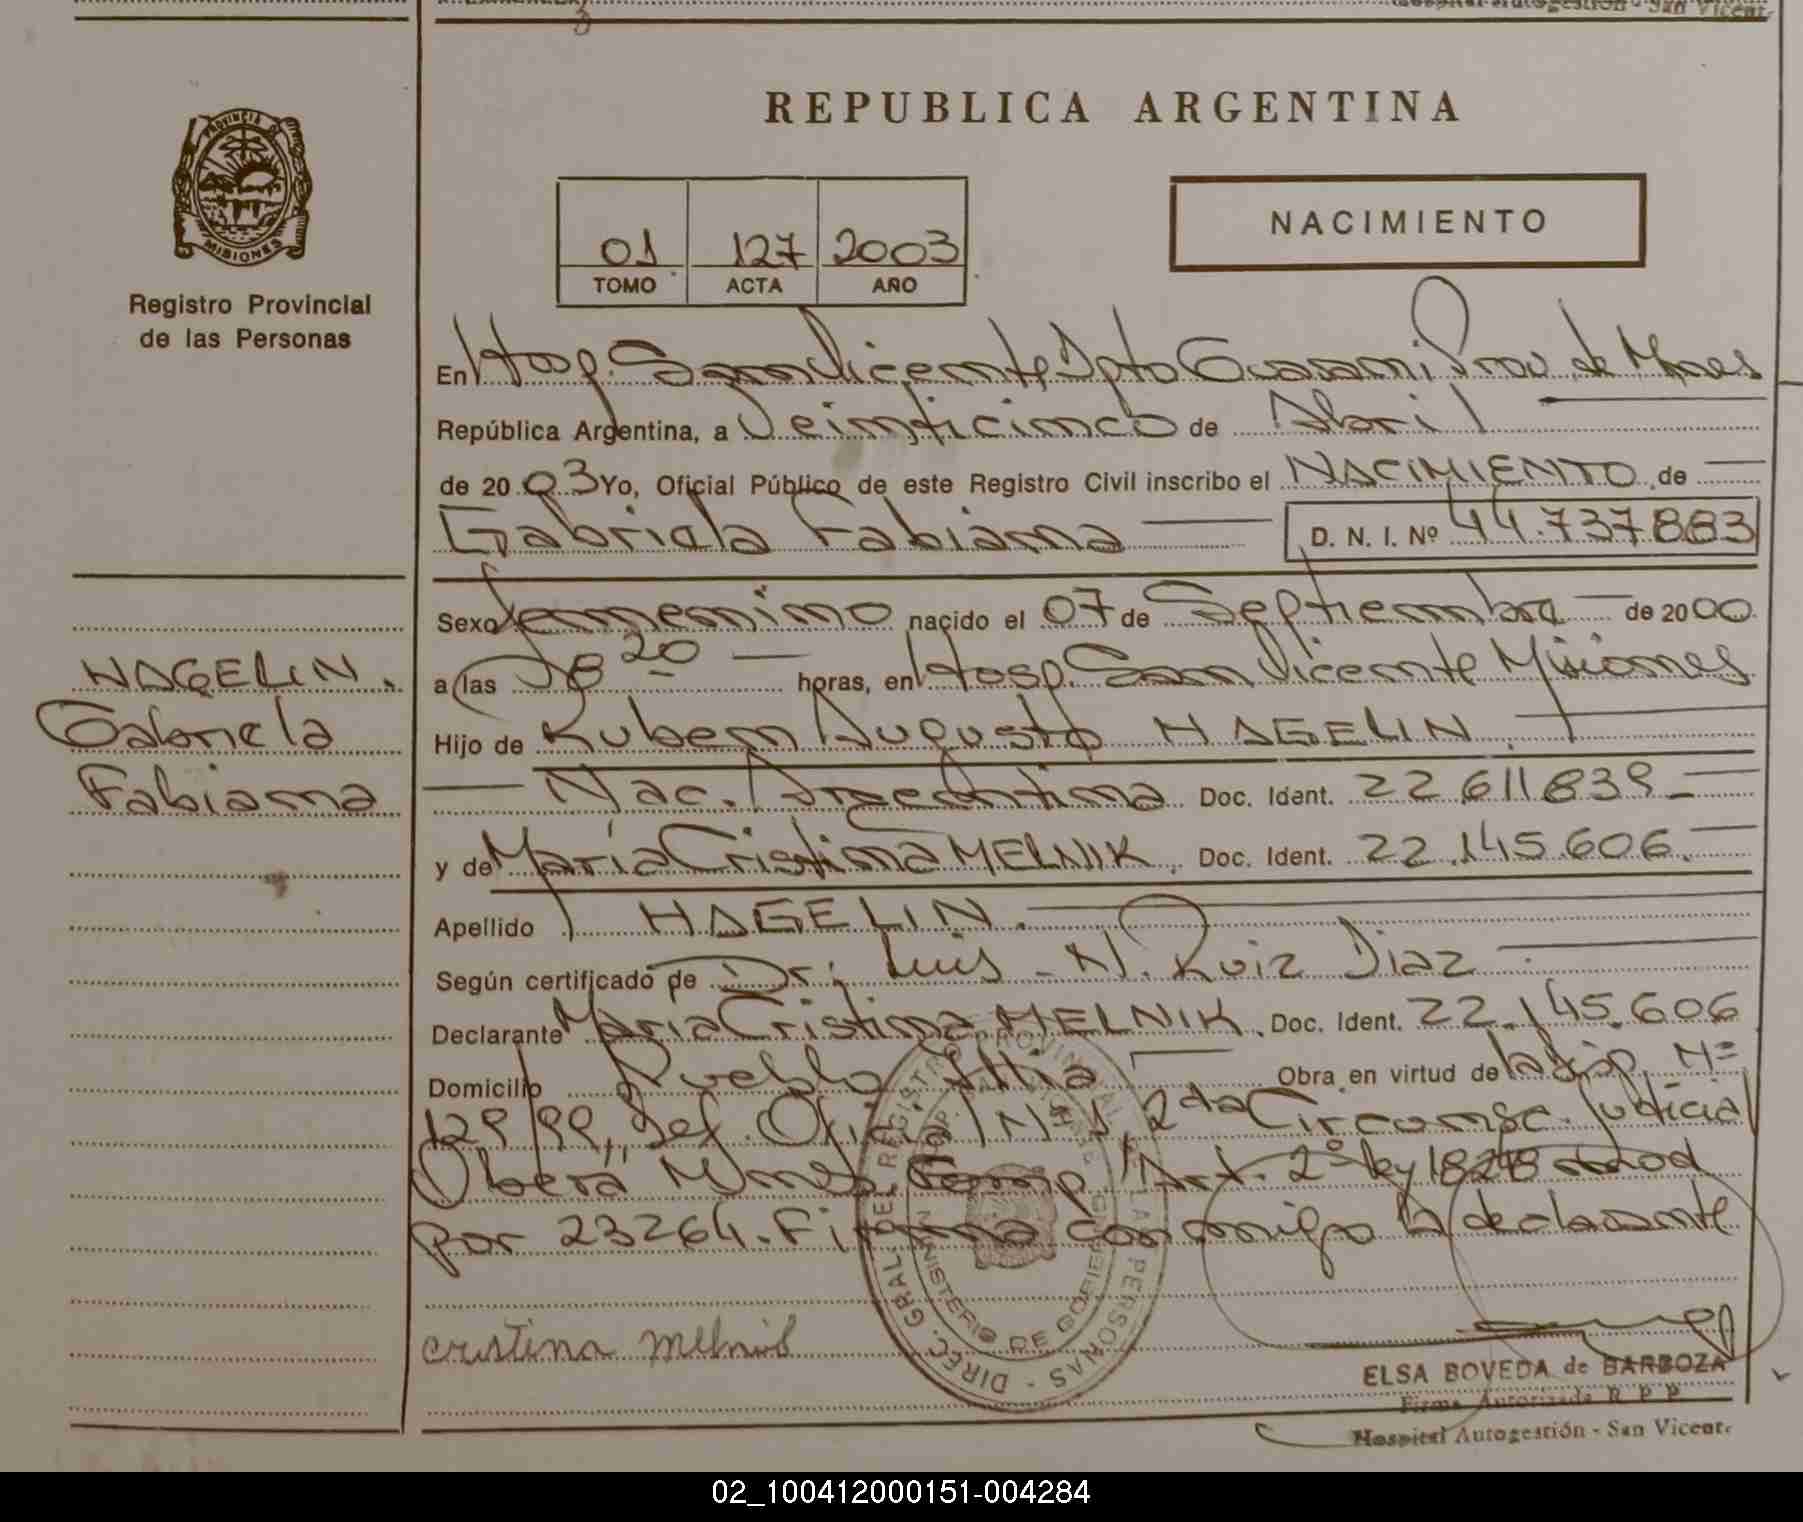 Hospital Autogestión - San Vicent.
REPUBLICA ARGENTINA
PROVINCIA DE
MISIONES
Registro Provincial
de las Personas
01 127 2003
TOMO ACTA AÑO
NACIMIENTO
En Hosp. San Vicente Dpto Guarani, Prov. de Mnes
República Argentina, a Veinticinco de Abril
de 20 03 Yo, Oficial Público de este Registro Civil inscribo el NACIMIENTO de
Gabriela Fabiana D. N. I. Nº 44.737883
Sexo femenino nacido el 07 de Septiembre de 2000
HAGELIN.
Gabriela
Fabiana
a las 8 20 horas, en Hosp. San Vicente Misiones
Hijo de Ruben Augusto HAGELIN.
Nac. Argentina Doc. Ident. 22611839
y de María Cristina MELNIK, Doc. Ident. 22.145.606.
Apellido HAGELIN.
Según certificado de Dr. Luis N. Ruiz Diaz
Declarante Maria Cristina MELNIK. Doc. Ident. 22.145.606
Domicilio Pueblo Illia Obra en virtud de la Disp. Nº
129/99, Def. Oficial Nº 1, 2da Circonsc. Judicial
Oberá Mnes. Art. 2º Ley 18248 mod
por 23264. Firma conmigo la declarante
DIREC. GRAL. DEL REGISTRO PROVINCIAL DE LAS PERSONAS
MINISTERIO DE GOBIERNO
cristina melnik
ELSA BOVEDA de BARBOZA
Firma Autorizada R P P
Hospital Autogestión - San Vicent.
02_100412000151-004284